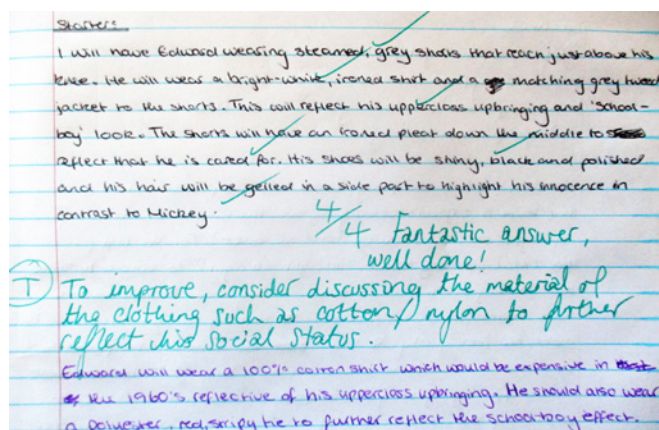 Starter:
I will have Edward wearing steamed, grey shorts that reach just above his
knee. He will wear a bright-white, ironed shirt and a matching grey tweed
jacket to the shorts. This will reflect his upperclass upbringing and 'school-
boy' look. The shorts will have an ironed pleat down the middle to
reflect that he is cared for. His shoes will be shiny, black and polished
and his hair will be gelled in a side part to highlight his innocence in
contrast to Mickey.
4/4 Fantastic answer,
well done!
T To improve, consider discussing the material of
the clothing such as cotton/nylon to further
reflect his social status.
Edward will wear a 100% cotton shirt which would be expensive in
the 1960's reflective of his upperclass upbringing. He should also wear
a polyester, red, stripy tie to further reflect the schoolboy effect.